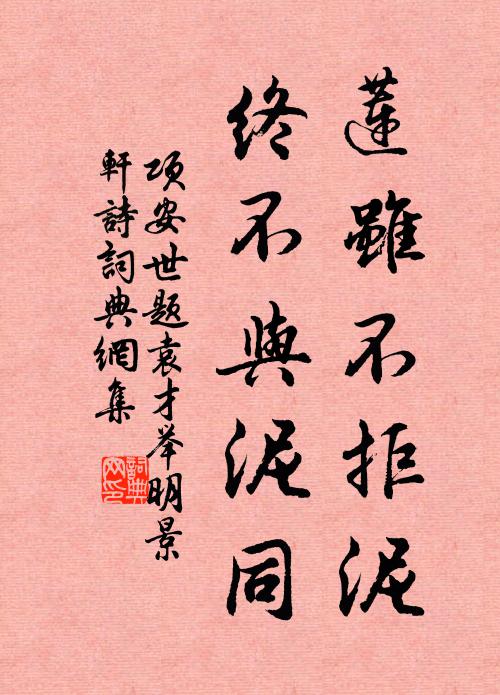 蓮雖不拒泥
終不與泥同
項安世題袁才举明景
軒詩詞典網集
詞典
网印